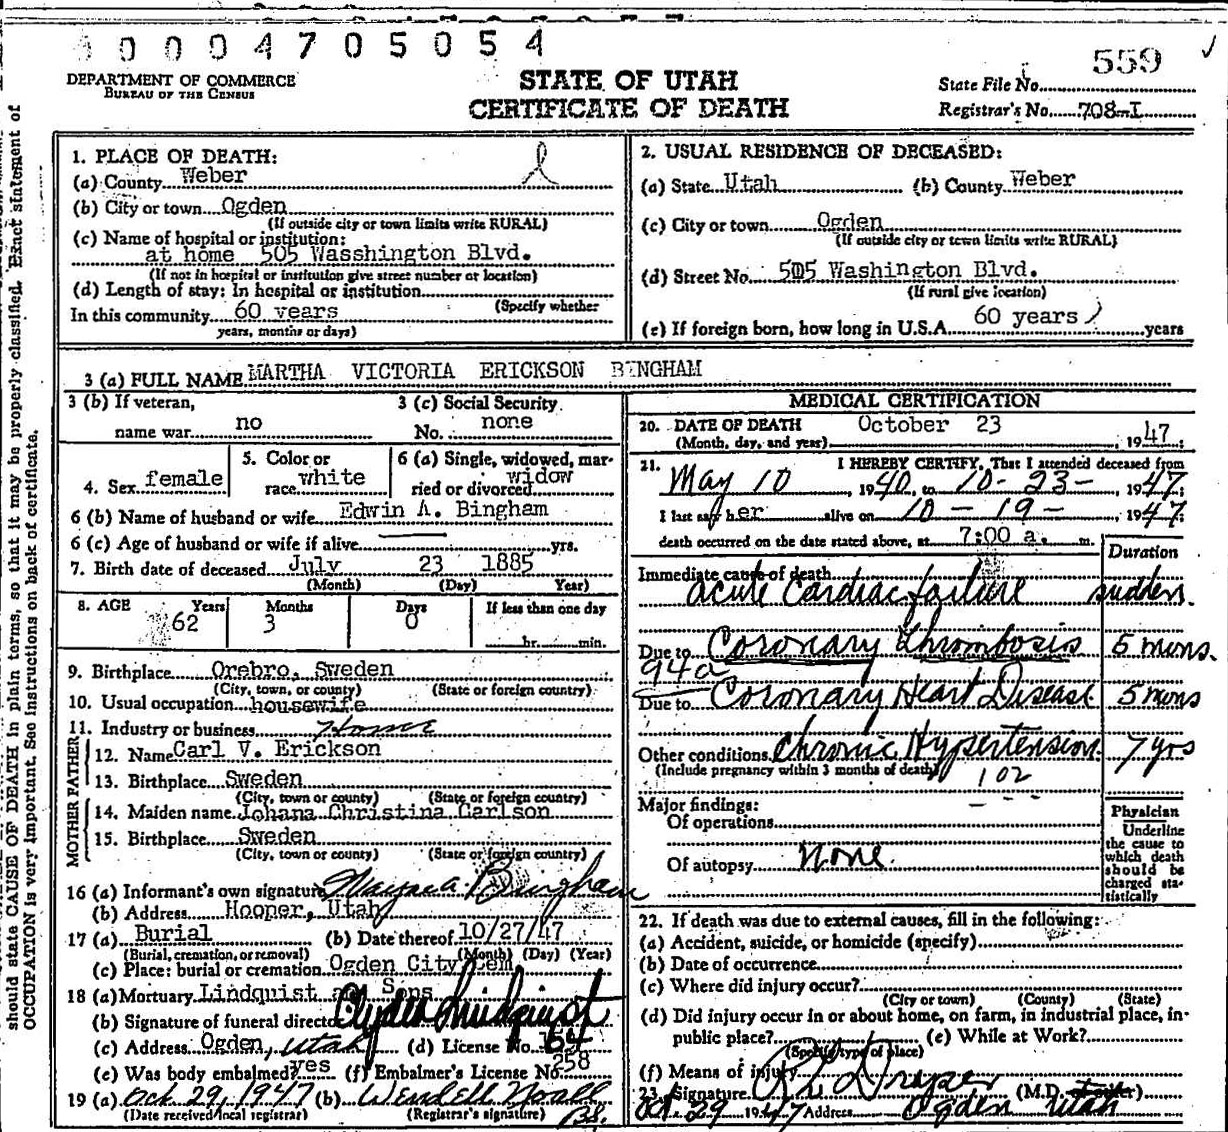 0004705054
559
DEPARTMENT OF COMMERCE
BUREAU OF THE CENSUS
STATE OF UTAH
CERTIFICATE OF DEATH
State File No.
Registrar's No. 708-I
should state CAUSE OF DEATH in plain terms, so that it may be properly classified. Exact statement of
OCCUPATION is very important. See instructions on back of certificate.
1. PLACE OF DEATH:
(a) County Weber
(b) City or town Ogden
(If outside city or town limits write RURAL)
(c) Name of hospital or institution:
at home 505 Wasshington Blvd.
(If not in hospital or institution give street number or location)
(d) Length of stay: In hospital or institution
(Specify whether
In this community 60 years
years, months or days)
2. USUAL RESIDENCE OF DECEASED:
(a) State Utah (b) County Weber
(c) City or town Ogden
(If outside city or town limits write RURAL)
(d) Street No. 505 Washington Blvd.
(If rural give location)
(e) If foreign born, how long in U.S.A. 60 years years
3 (a) FULL NAME MARTHA VICTORIA ERICKSON BINGHAM
3 (b) If veteran,
name war no
3 (c) Social Security
No. none
4. Sex female
5. Color or
race white
6 (a) Single, widowed, mar-
ried or divorced widow
6 (b) Name of husband or wife Edwin A. Bingham
6 (c) Age of husband or wife if alive yrs.
7. Birth date of deceased July 23 1885
(Month) (Day) Year)
8. AGE Years Months Days If less than one day
62 3 0 hr. min.
9. Birthplace Orebro, Sweden
(City, town, or county) (State or foreign country)
10. Usual occupation housewife
11. Industry or business Home
FATHER
12. Name Carl V. Erickson
13. Birthplace Sweden
(City, town or county) (State or foreign country)
MOTHER
14. Maiden name Johana Christina Carlson
15. Birthplace Sweden
(City, town or county) (State or foreign country)
16 (a) Informant's own signature Bingham
(b) Address Hooper, Utah
17 (a) Burial (b) Date thereof 10/27/47
(Burial, cremation, or removal) (Month) (Day) (Year)
(c) Place: burial or cremation Ogden City Cem
18 (a) Mortuary Lindquist and Sons
(b) Signature of funeral director Clyde Lindquist
(c) Address Ogden, Utah (d) License No. 164
(e) Was body embalmed? yes (f) Embalmer's License No. 258
19 (a) Oct 29, 1947 (b) Wendell
(Date received local registrar) (Registrar's signature)
MEDICAL CERTIFICATION
20. DATE OF DEATH October 23
(Month, day, and year) , 1947;
21. I HEREBY CERTIFY, That I attended deceased from
May 10, 1940, to 10-23-, 1947;
I last saw her alive on 10-19-, 1947;
death occurred on the date stated above, at 7:00 a. m.
Duration
Immediate cause of death
acute Cardiac failure sudden.
Due to Coronary Thrombosis 5 mins.
94a
Due to Coronary Heart Disease 5 mins
Other conditions Chronic Hypertension 7 yrs
(Include pregnancy within 3 months of death)
102
Major findings:
Of operations
Of autopsy None.
Physician
Underline
the cause to
which death
should be
charged sta-
tistically
22. If death was due to external causes, fill in the following:
(a) Accident, suicide, or homicide (specify)
(b) Date of occurrence
(c) Where did injury occur?
(City or town) (County) (State)
(d) Did injury occur in or about home, on farm, in industrial place, in-
public place? (e) While at Work?
(Specify type of place)
(f) Means of injury
23. Signature Draper (M.D. or other)
Oct. 29 1947 Address Ogden Utah